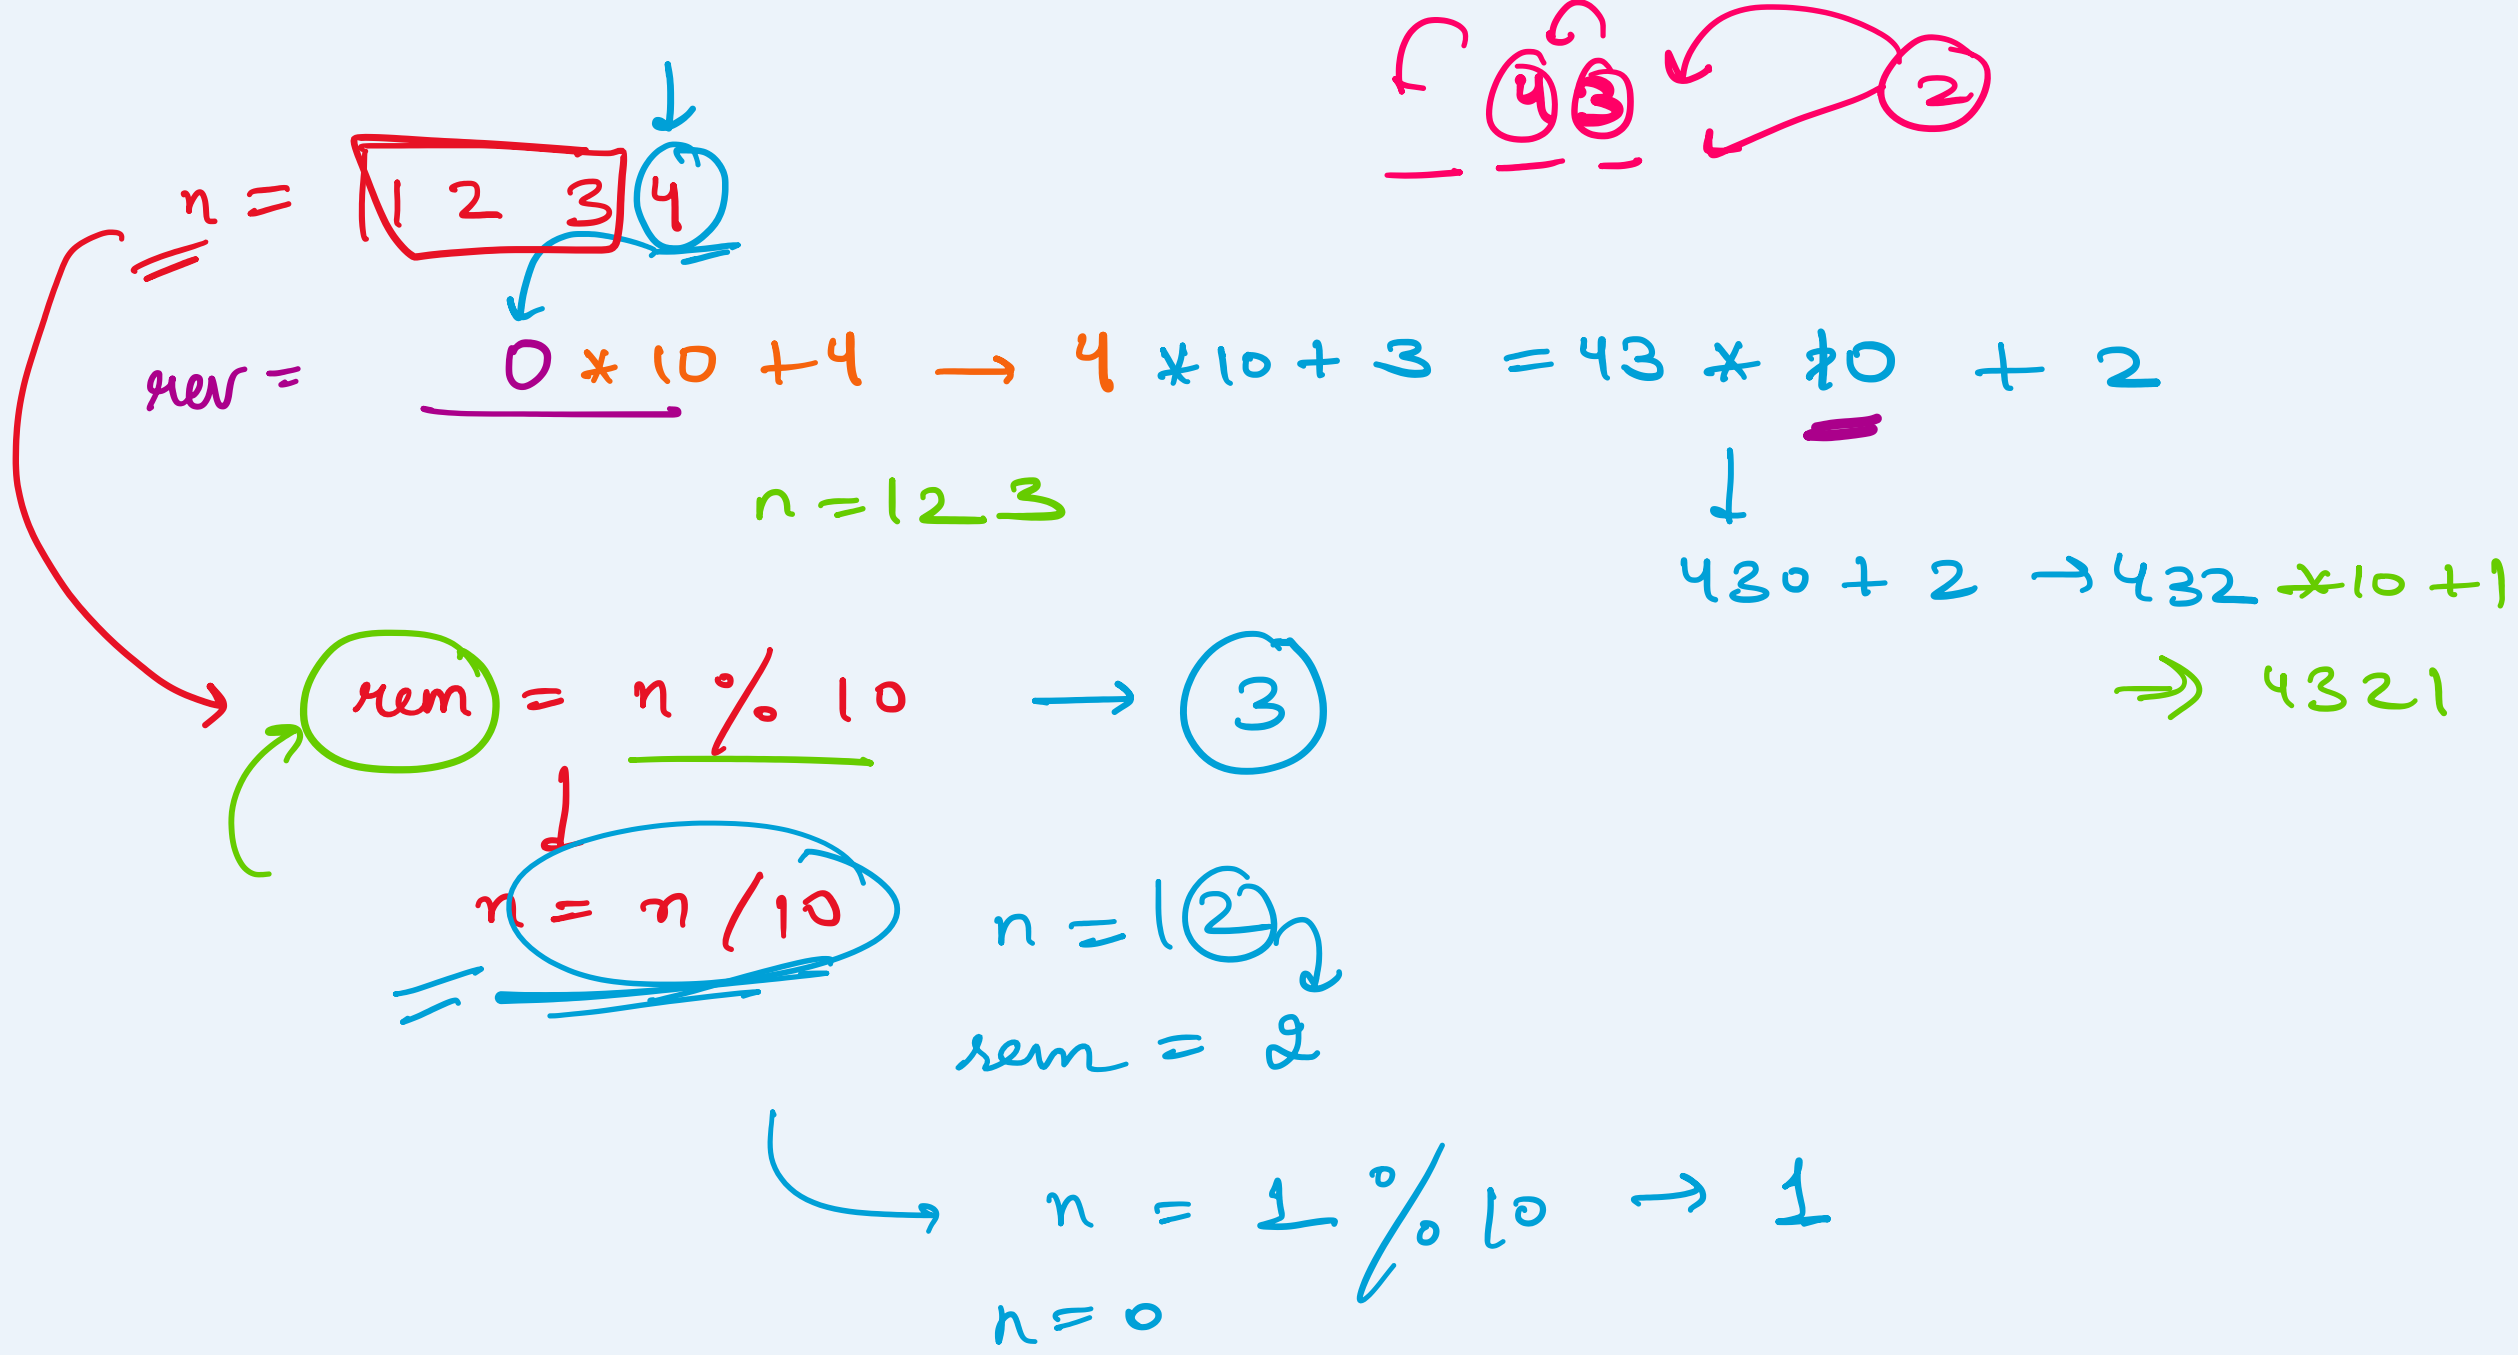 4 3 2
n = 1 2 3 4
rev = 0 * 10 + 4 → 4 * 10 + 3 = 43 * 10 + 2
n = 123
430 + 2 → 432 * 10 + 1
rem = n % 10 → 3 → 4321
n = n / 10 n = 12
rem = 2
n = 1 % 10 → 1
n = 0